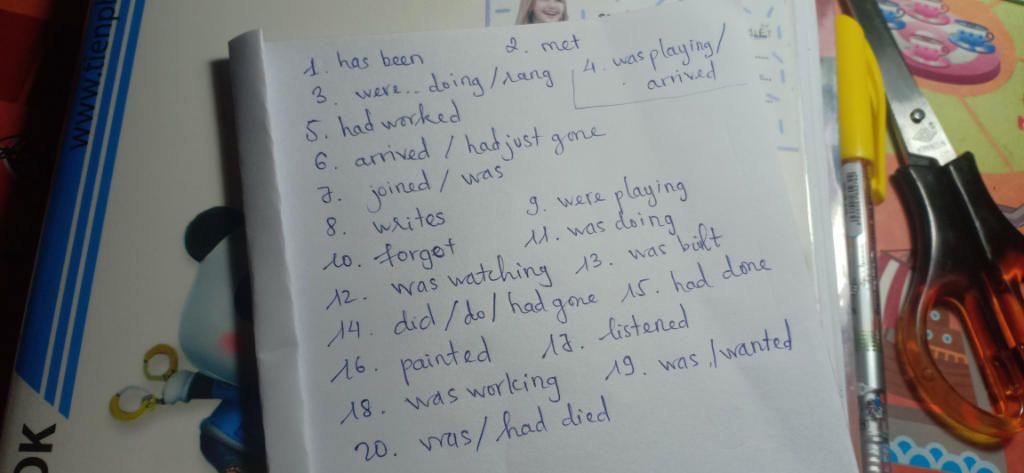 1. has been 2. met
3. were.. doing / rang 4. was playing /
arrived
5. had worked
6. arrived / had just gone
7. joined / was
8. writes 9. were playing
10. forgot 11. was doing
12. was watching 13. was built
14. did / do / had gone 15. had done
16. painted 17. listened
18. was working 19. was / wanted
20. was / had died
www.tienph
OK